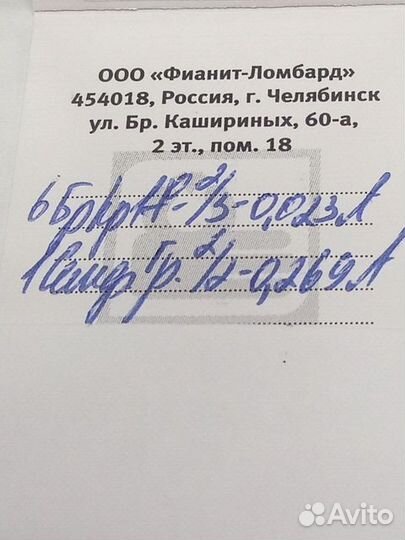 ООО «Фианит-Ломбард»
454018, Россия, г. Челябинск
ул. Бр. Кашириных, 60-а,
2 эт., пом. 18
6 Бр Кр 17 - 2/3 - 0,023 Л
1 Сапф Гр. 2/2 - 0,269 Л
Avito